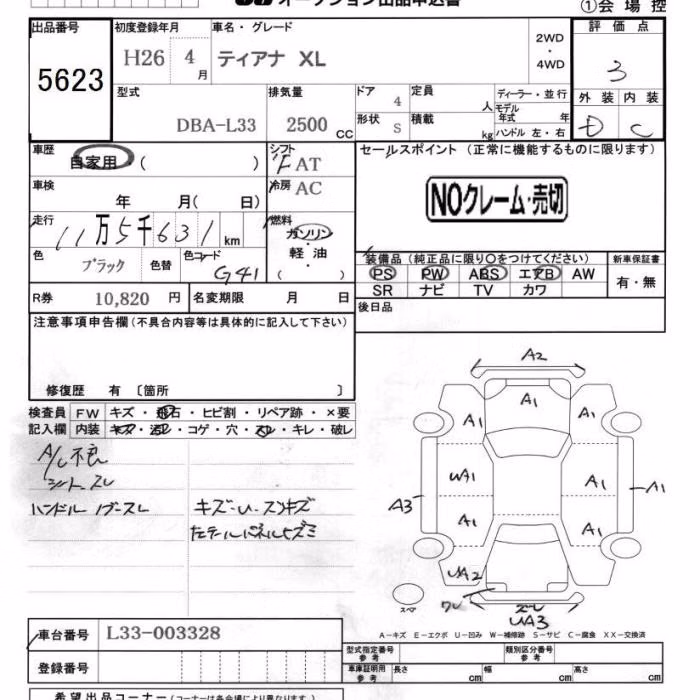 オークション出品申込書
①会場控
出品番号 初度登録年月 車名・グレード 評価点
5623 H26 4月 ティアナ XL 2WD・4WD 3
型式 排気量 ドア 定員 ディーラー・並行 外装 内装
DBA-L33 2500 CC 4 人 モデル年式 年 D C
形状 積載
S kg ハンドル 左・右
車歴 自家用・( ) シフト F AT セールスポイント (正常に機能するものに限ります)
車検 年 月( 日) 冷房 AC NOクレーム・売切
走行 11万5千631km 燃料 ガソリン・軽油・( )
色 ブラック 色替 色コード G41
装備品(純正品に限り○をつけてください) 新車保証書
PS PW ABS エアB AW 有・無
SR ナビ TV カワ
R券 10,820 円 名変期限 月 日 後日品
注意事項申告欄(不具合内容等は具体的に記入して下さい)
修復歴 有 〔箇所 〕
検査員 FW キズ・飛石・ヒビ割・リペア跡・×要
記入欄 内装 キズ・汚レ・コゲ・穴・スレ・キレ・破レ
A/C不良
シートスレ
ハンドル
キズ・U・スリキズ
A2
A1
A1 A1
WA1 A1
A3 A1
A1 A1
UA2
ワレ
スペア
UA3
A-キズ E-エクボ U-凹み W-補修跡 S-サビ C-腐食 XX-交換済
車台番号 L33-003328
型式指定番号 参考 類別区分番号 参考
登録番号 車庫証明用 参考 長さ cm 幅 cm 高さ cm
希望出品コーナー(コーナーは各会場により異なります)